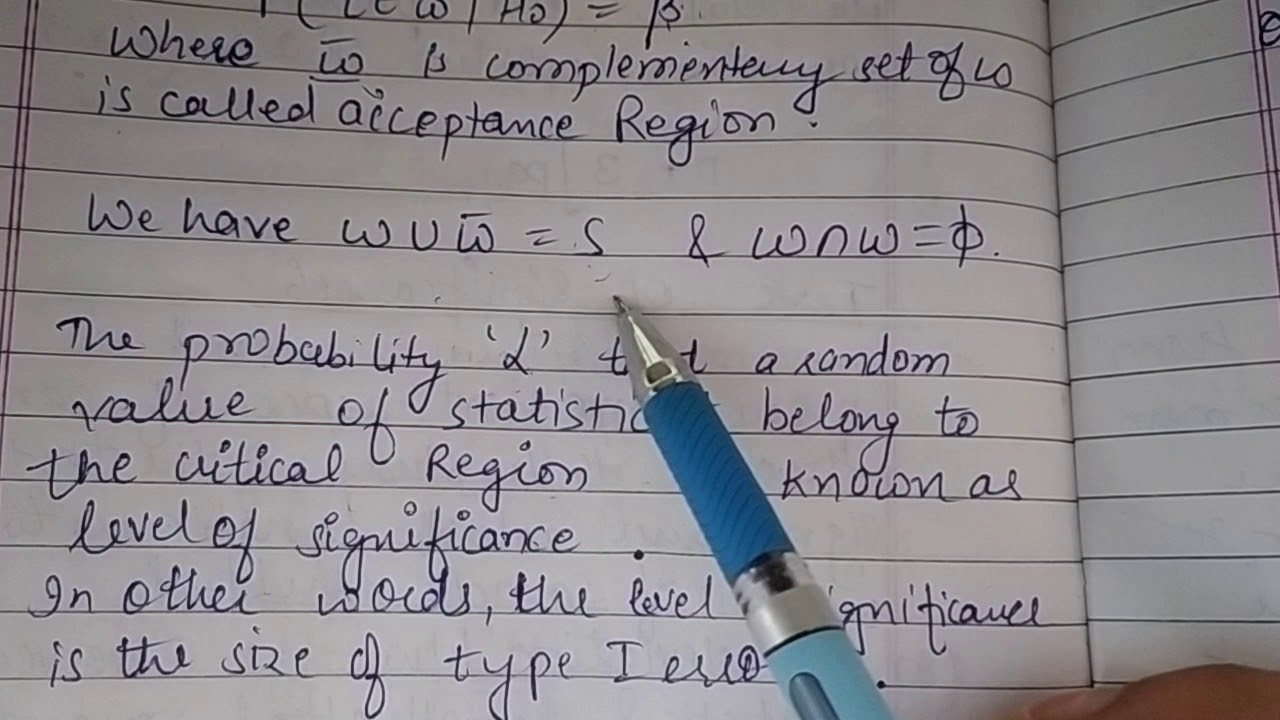 (t ∈ ω̄ / H0) = β.
where ω̄ is complementeny set of ω
is called acceptance Region.
We have ω ∪ ω̄ = S & ω ∩ ω = ϕ.
The probability 'α' a random
value of statistic belong to
the critical Region known as
level of significance.
In other words, the level
is the size of type I